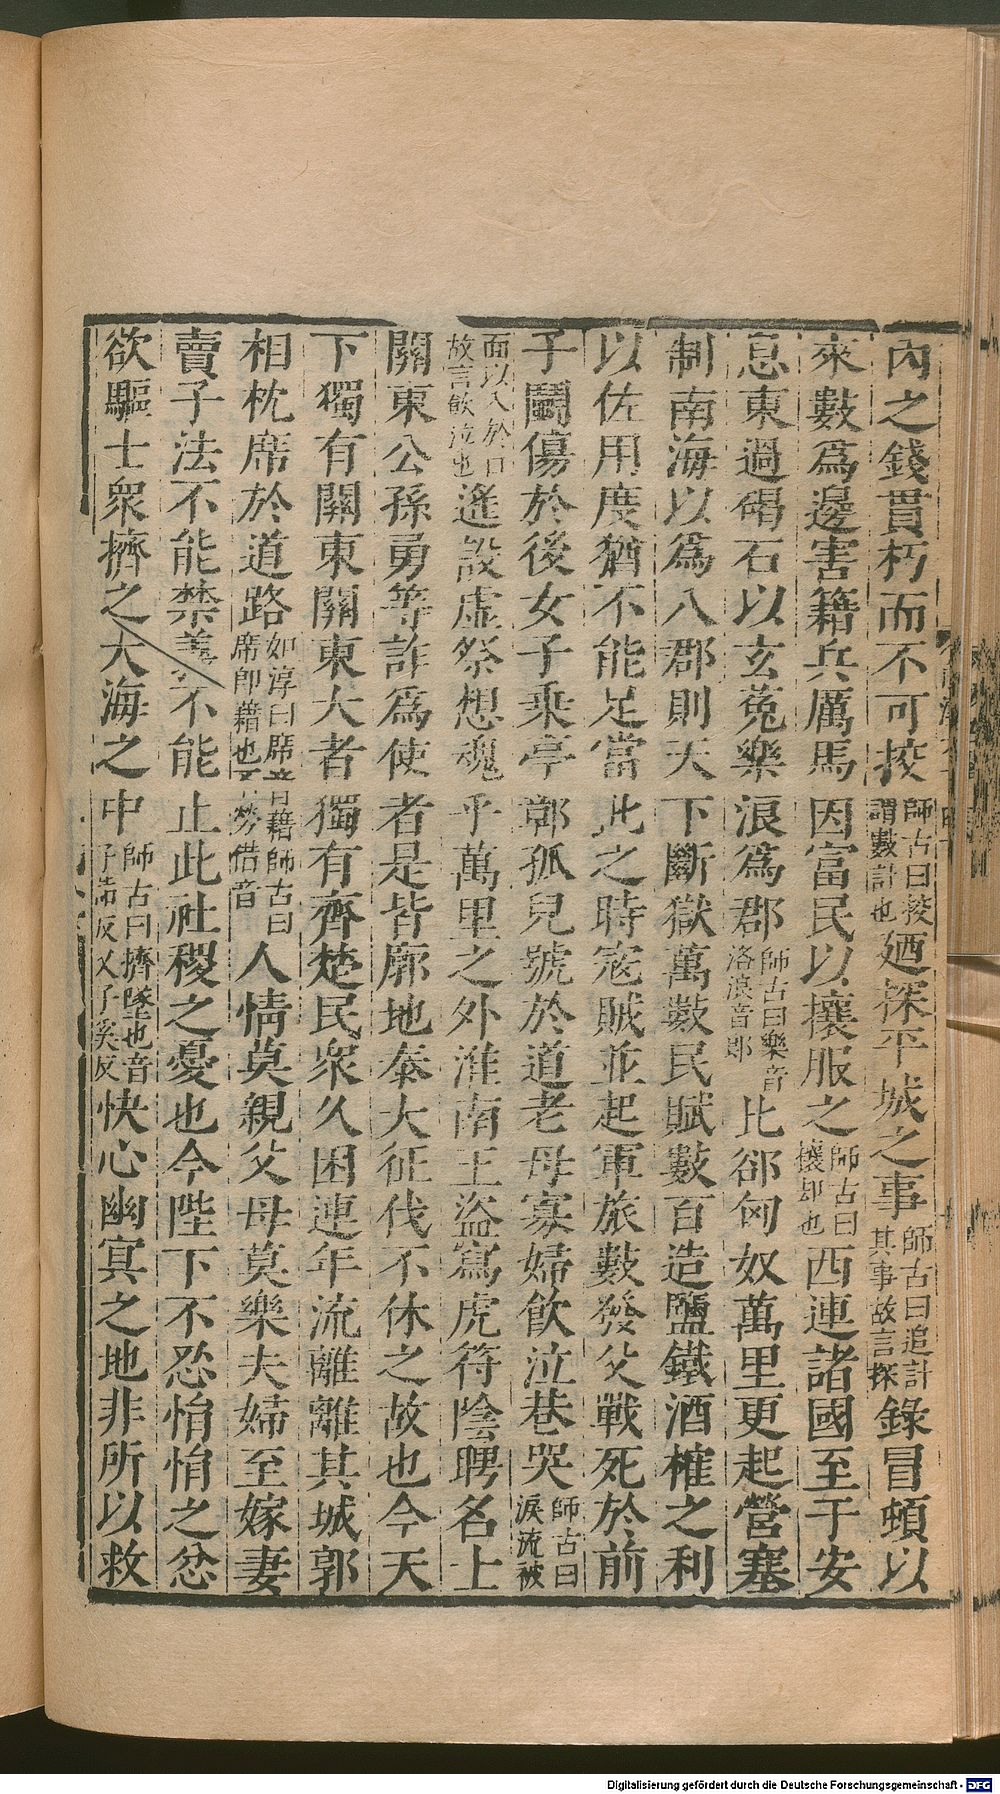 內之錢貫朽而不可挍師古曰挍謂數計也廼探平城之事師古曰追計其事故言探錄冒頓以
來數爲邊害籍兵厲馬因富民以攘服之師古曰攘却也西連諸國至于安
息東過碣石以玄菟樂浪爲郡師古曰樂音洛浪音郎比郤匈奴萬里更起營塞
制南海以爲八郡則天下斷獄萬數民賦數百造鹽鐵酒榷之利
以佐用度猶不能足當此之時寇賊並起軍旅數發父戰死於前
子鬬傷於後女子乘亭鄣孤兒號於道老母寡婦飲泣巷哭師古曰淚流被
面以入於口故言飲泣也遙設虛祭想魂乎萬里之外淮南王盜寫虎符陰聘名士
關東公孫勇等詐爲使者是皆廓地泰大征伐不休之故也今天
下獨有關東關東大者獨有齊楚民衆久困連年流離離其城郭
相枕席於道路如淳曰席音藉師古曰席即藉也不勞借音人情莫親父母莫樂夫婦至嫁妻
賣子法不能禁義不能止此社稷之憂也今陛下不忍悁悁之忿
欲驅士衆擠之大海之中師古曰擠墜也音子詣反又子奚反快心幽冥之地非所以救
Digitalisierung gefördert durch die Deutsche Forschungsgemeinschaft - DFG